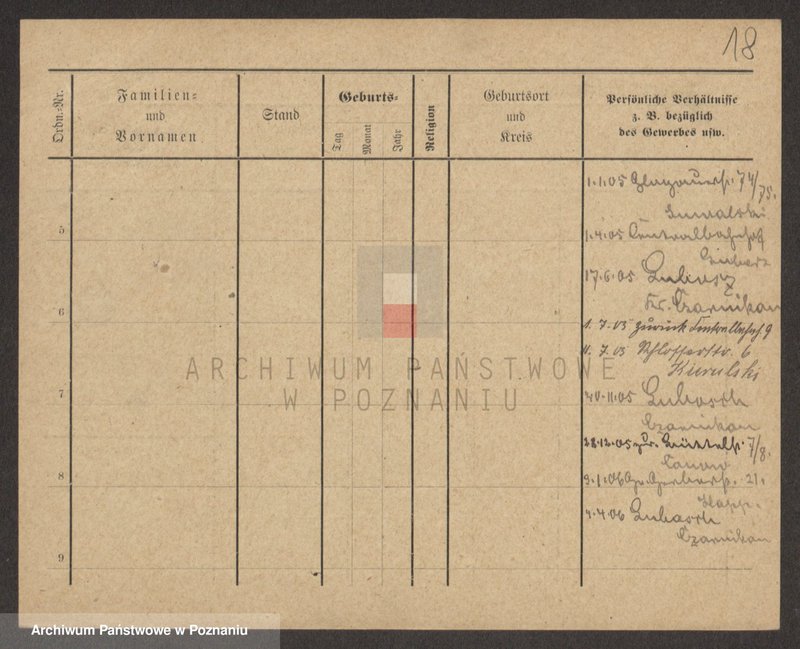 18
Ordn.-Nr.
Familien-
und
Vornamen
Stand
Geburts-
Tag
Monat
Jahr
Religion
Geburtsort
und
Kreis
Persönliche Verhältnisse
z. B. bezüglich
des Gewerbes usw.
1.1.05 74/75.
5
1.4.05 Centralbahnhof
17.6.05
Kr. Czarnikau
6
1.7.05 zurück 9
11.7.05 Schlosserstr. 6
ARCHIWUM PAŃSTWOWE
W POZNANIU
7
Lubasch
Czarnikau
28.12.05 zur. Büttelst. 7/8.
8
9.1.06 Gr. Gerberst. 21.
4.4.06 Lubasch
Czarnikau
9
Archiwum Państwowe w Poznaniu